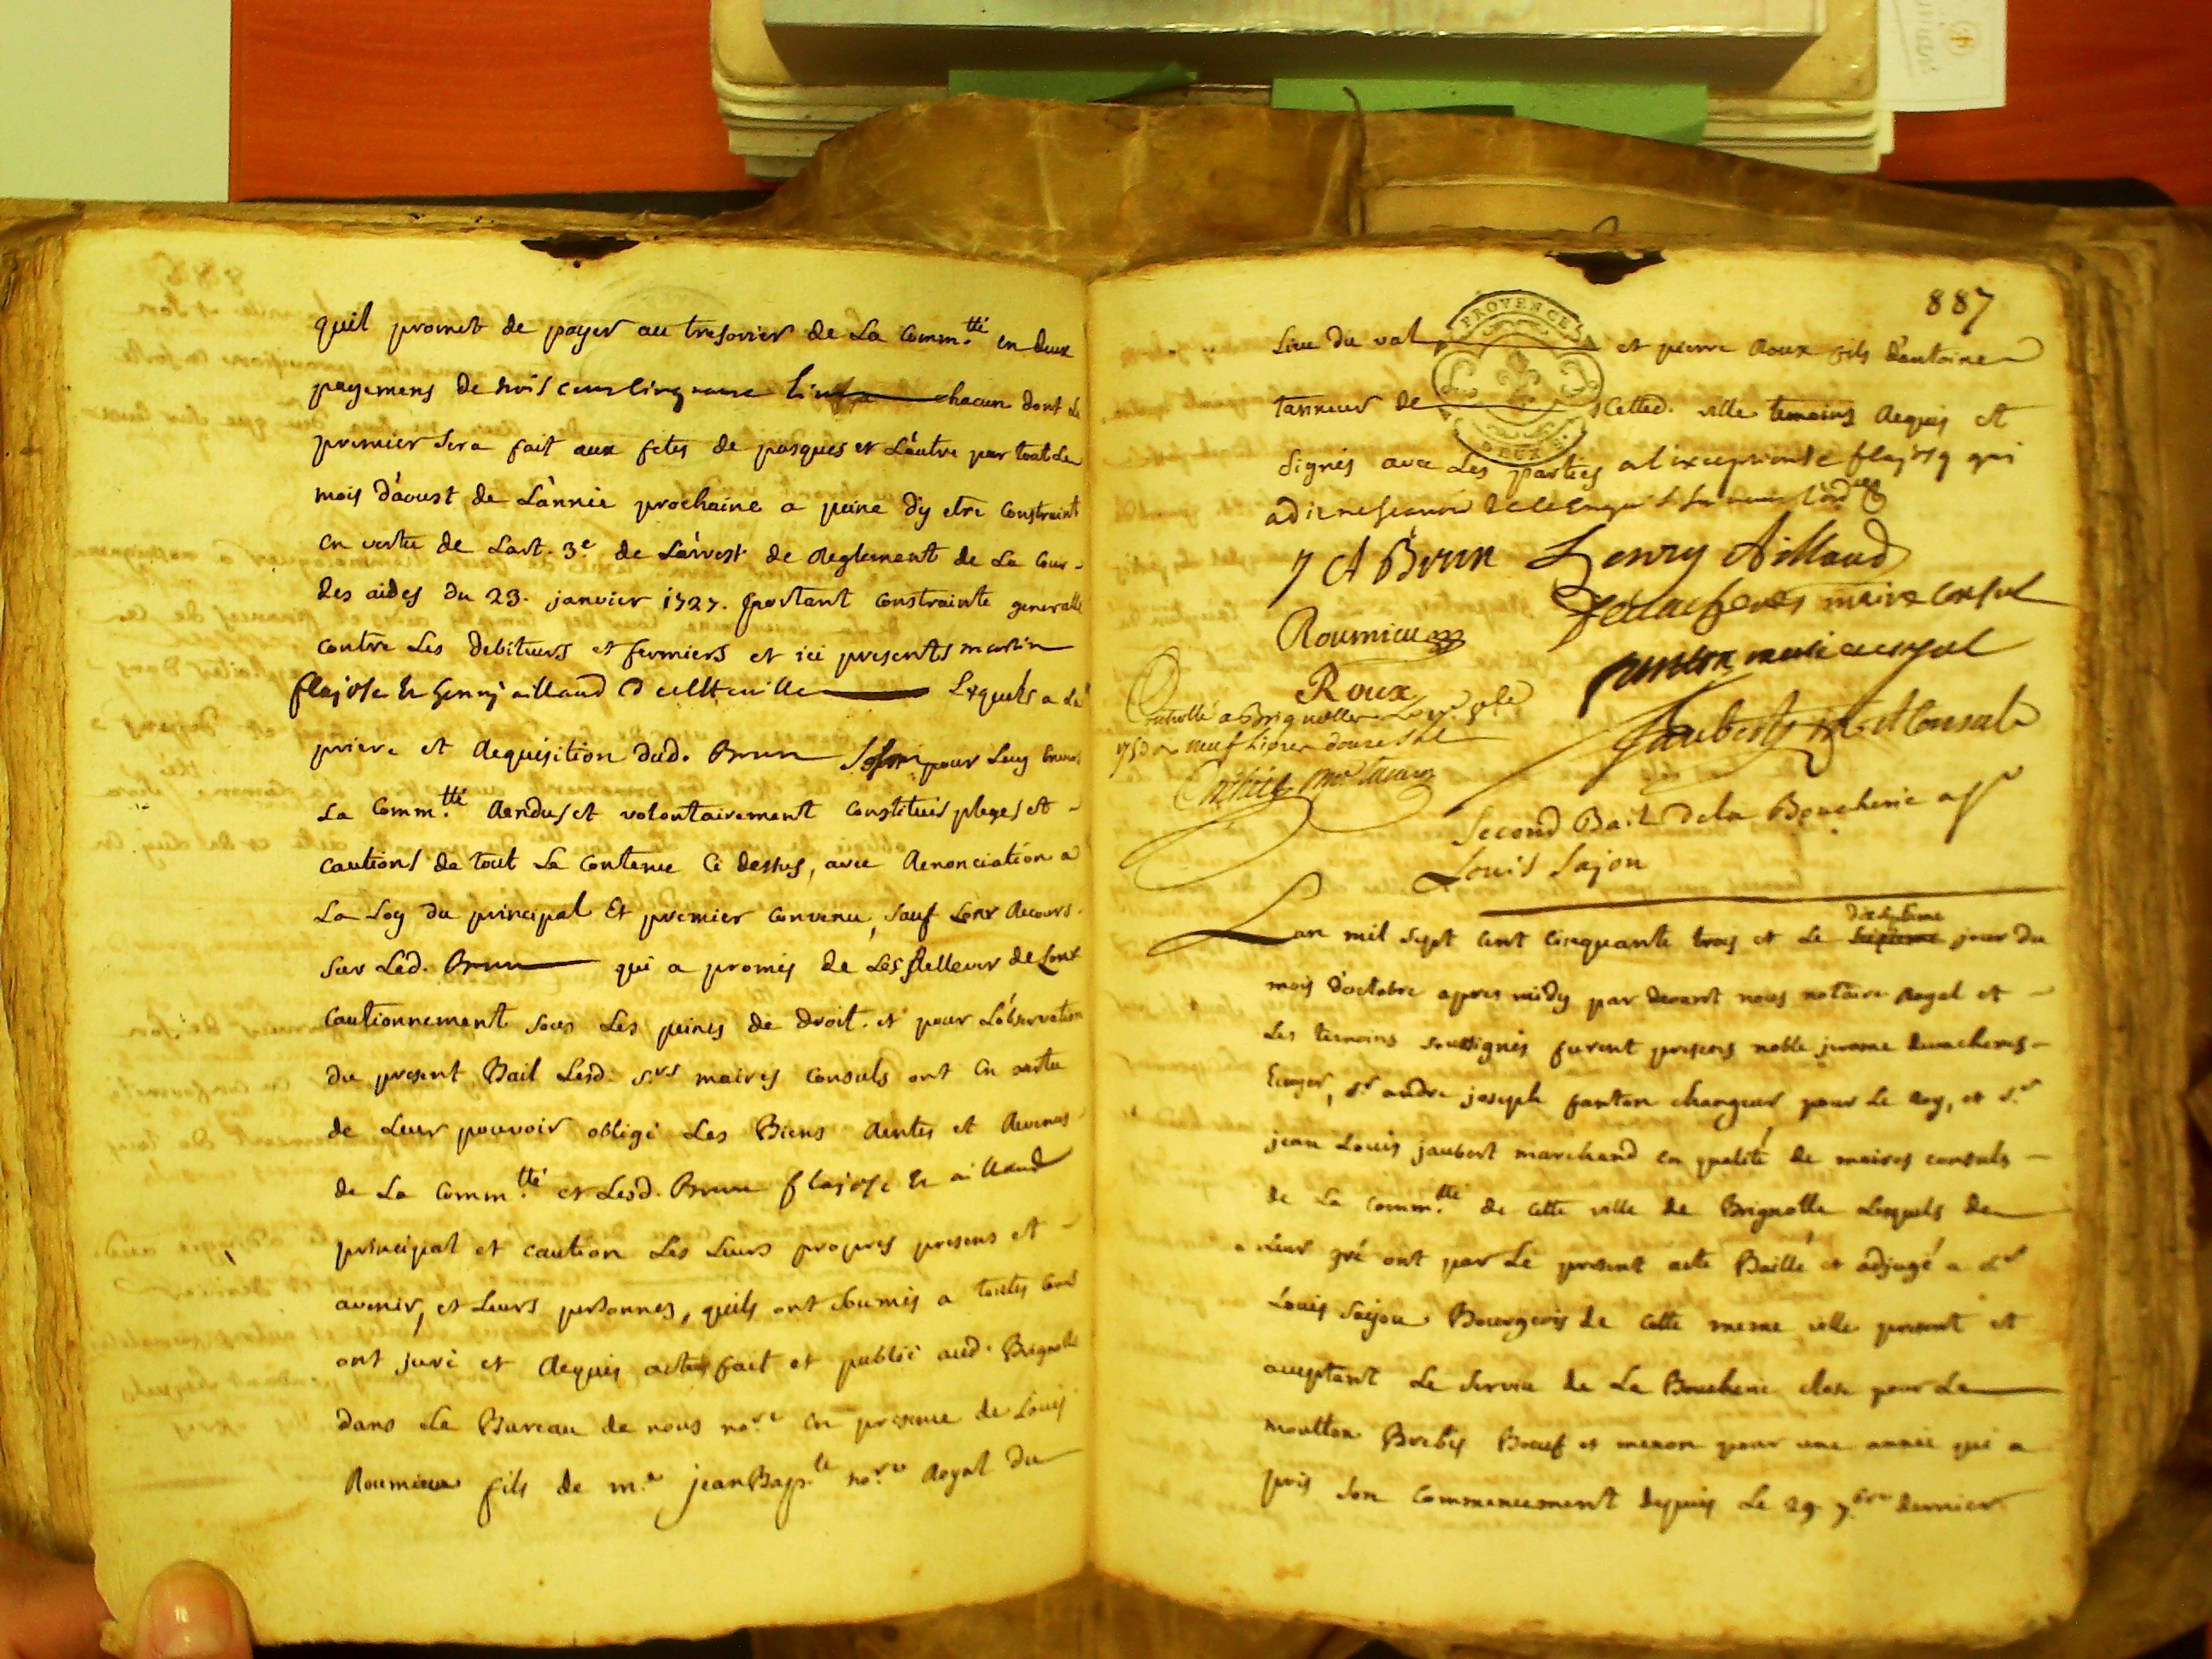 quil promet de payer au tresorier de La Comm.tté en deux
payemens de trois cens cinquante Livres chacun dont Le
premier sera fait aux fetes de pasques et L'autre par tout Le
mois d'aoust de L'année prochaine a peine d'y etre Constraint
en vertu de L'art. 3.e de L'arrest de Reglement de La Cour
des aides du 23. janvier 1727. portant Constrainte generalle
contre Les debiteurs et fermiers et ici presents martin
flajose et henry aillaud de cette ville Lesquels a La
priere et Requisition dud. Brun se sont pour Luy envers
La Comm.tté Rendus et volontairement Constitués pleges et
cautions de tout Le Contenu Ci dessus, avec Renonciation a
La Loy du principal Et premier Convenu, sauf Leur Recours
sur Led. Brun qui a promis de Les Relever de Leur
Cautionnement sous Les peines de droit. et pour L'observation
du present Bail Lesd. s.rs maires Consuls ont en vertu
de Leur pouvoir obligé Les Biens Rentes et Revenus
de La Comm.tté et Lesd. Brun flajose et aillaud
principal et caution Les Leurs propres presens et
avenir, et Leurs personnes, quils ont soumis a toutes Cours
ont juré et Requis acte fait et publié aud. Brignolle
dans Le Bureau de nous no.re en presence de Louis
Roumieu fils de m.e jean Bap.te no.re Royal du
887
PROVENCE
DEUX
Lieu du val et pierre Roux fils d'antoine
tanneur de Cetted. ville temoins Requis et
signés avec Les parties a l'exception de flajose qui
a dit ne scavoir de ce Enquis
J A Brun Henry Aillaud
Roumieu maire consul
Roux fanton maire consul
Controllé a Brignolle
neuf Livres douze sols
Jaubert m.e Consul
Second Bail de la Boucherie a s.r
Louis Sajou
Lan mil sept cent cinquante trois et Le dixseptieme jour du
mois d'octobre apres midy par devant nous notaire Royal et
Les temoins soussignés furent presens noble jerome devacheres
Ecuyer, s.r andre joseph fanton changeur pour Le Roy, et s.r
jean Louis jaubert marchand en qualité de maires consuls
de La Comm.tté de cette ville de Brignolle Lesquels de
Leur gré ont par Le present acte Baillé et adjugé a s.r
Louis Sajou Bourgeois de cette meme ville present et
acceptant Le service de La Boucherie close pour Le
moutton Brebis Boeuf et menon pour une année qui a
pris son commencement depuis Le 29. 7.bre dernier